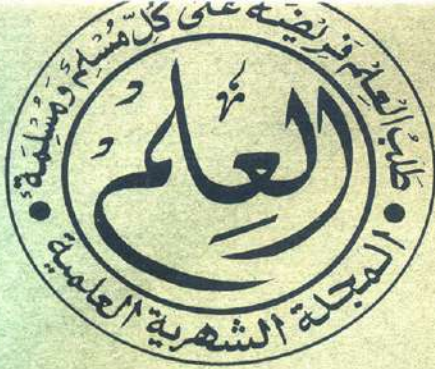 طَلَبُ العِلْمِ فَرِيضَةٌ عَلَى كُلِّ مُسْلِمٍ وَمُسْلِمَةٍ
العِلم
المجلة الشهرية العلمية